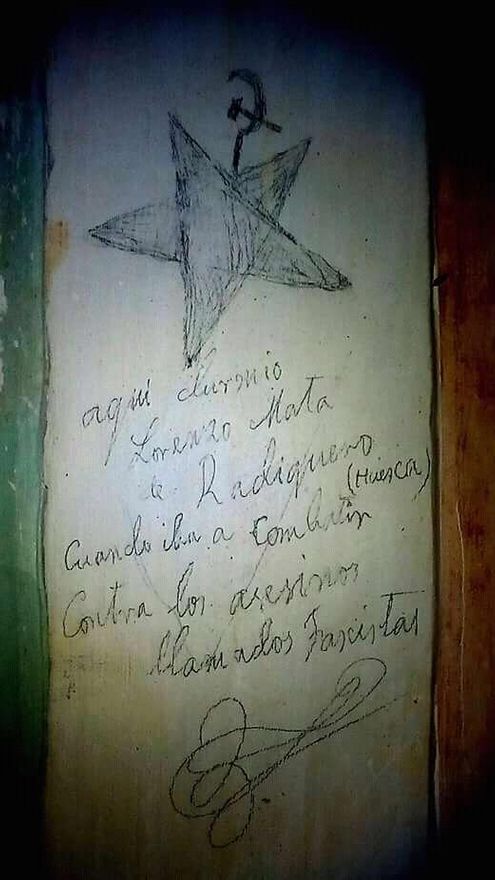 aqui durmio
Lorenzo Mata
de Radiquero
(Huesca)
Cuando iba a Combatir
Contra los asesinos
llamados Fascistas